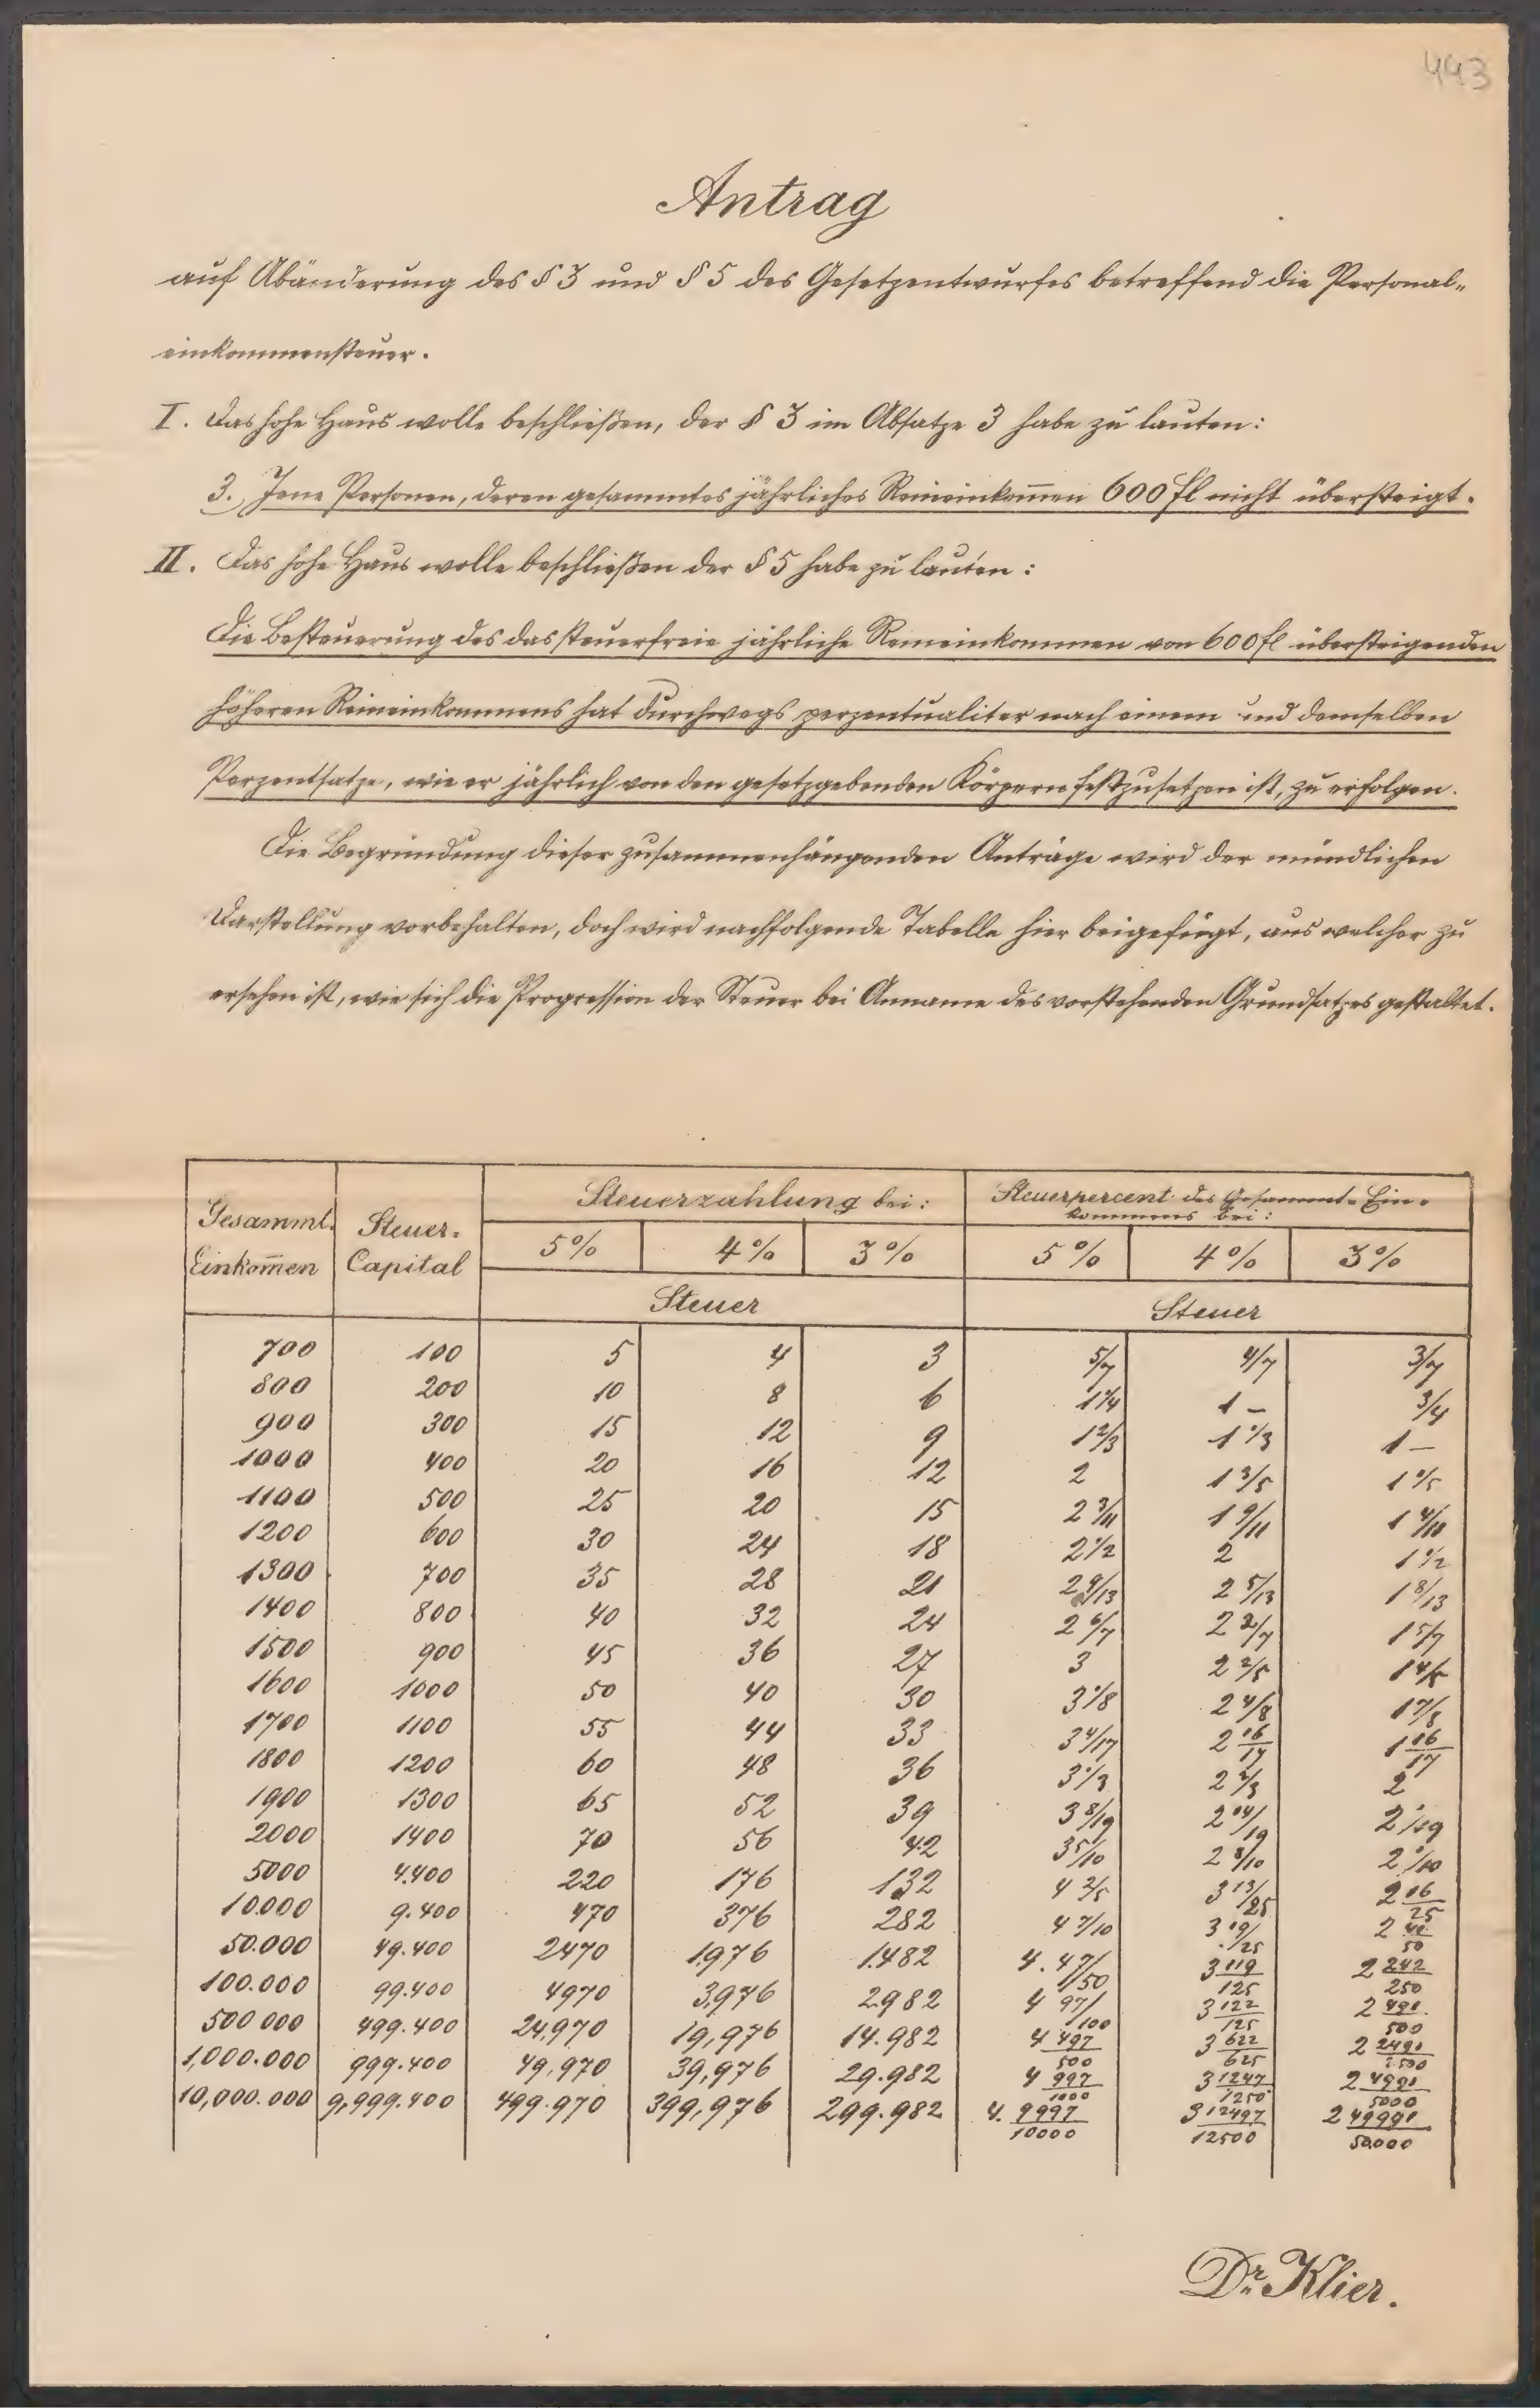 443
Antrag
auf Abänderung des § 3 und § 5 des Gesetzentwurfes betreffend die Personal-
einkommensteuer.
I. Das hohe Haus wolle beschließen, der § 3 im Absatze 3 habe zu lauten:
3. Jene Personen, deren gesammtes jährliches Reineinkom̄en 600 fl nicht übersteigt.
II. Das hohe Haus wolle beschließen der § 5 habe zu lauten:
Die Besteuerung des das steuerfreie jährliche Reineinkommen von 600 fl übersteigenden
höheren Reineinkommens hat durchwegs perzentualiter nach einem und demselben
Perzentsatze, wie er jährlich von den gesetzgebenden Körpern festzusetzen ist, zu erfolgen.
Die Begründung dieser zusammenhängenden Anträge wird der mündlichen
Darstellung vorbehalten, doch wird nachfolgende Tabelle hier beigefügt, aus welcher zu
ersehen ist, wie sich die Progression der Steuer bei Anname des vorstehenden Grundsatzes gestaltet.
Gesammt- Einkom̄en | Steuer- Capital | Steuerzahlung bei: | Steuerpercent des Gesammt-Ein-
kommens bei:
5% | 4% | 3% | 5% | 4% | 3%
Steuer | Steuer
700 | 100 | 5 | 4 | 3 | 5/7 | 4/7 | 3/7
800 | 200 | 10 | 8 | 6 | 1 1/4 | 1 – | 3/4
900 | 300 | 15 | 12 | 9 | 1 2/3 | 1 1/3 | 1 –
1000 | 400 | 20 | 16 | 12 | 2 | 1 3/5 | 1 1/5
1100 | 500 | 25 | 20 | 15 | 2 3/11 | 1 9/11 | 1 4/11
1200 | 600 | 30 | 24 | 18 | 2 1/2 | 2 | 1 1/2
1300 | 700 | 35 | 28 | 21 | 2 9/13 | 2 5/13 | 1 8/13
1400 | 800 | 40 | 32 | 24 | 2 6/7 | 2 2/7 | 1 5/7
1500 | 900 | 45 | 36 | 27 | 3 | 2 2/5 | 1 4/5
1600 | 1000 | 50 | 40 | 30 | 3 1/8 | 2 4/8 | 1 7/8
1700 | 1100 | 55 | 44 | 33 | 3 4/17 | 2 16/17 | 1 16/17
1800 | 1200 | 60 | 48 | 36 | 3 1/3 | 2 2/3 | 2
1900 | 1300 | 65 | 52 | 39 | 3 8/19 | 2 14/19 | 2 1/19
2000 | 1400 | 70 | 56 | 42 | 3 5/10 | 2 8/10 | 2 1/10
5000 | 4.400 | 220 | 176 | 132 | 4 2/5 | 3 13/25 | 2 16/25
10.000 | 9.400 | 470 | 376 | 282 | 4 7/10 | 3 19/25 | 2 41/50
50.000 | 49.400 | 2470 | 1976 | 1.482 | 4. 47/50 | 3 119/125 | 2 242/250
100.000 | 99.400 | 4970 | 3,976 | 2.982 | 4 97/100 | 3 122/125 | 2 491/500
500 000 | 499.400 | 24,970 | 19,976 | 14.982 | 4 497/500 | 3 622/625 | 2 2491/2500
1,000.000 | 999.400 | 49,970 | 39,976 | 29.982 | 4 997/1000 | 3 1247/1250 | 2 4991/5000
10,000.000 | 9,999.400 | 499.970 | 399,976 | 299.982 | 4. 9997/10000 | 3 12497/12500 | 2 49991/50.000
Dr. Klier.